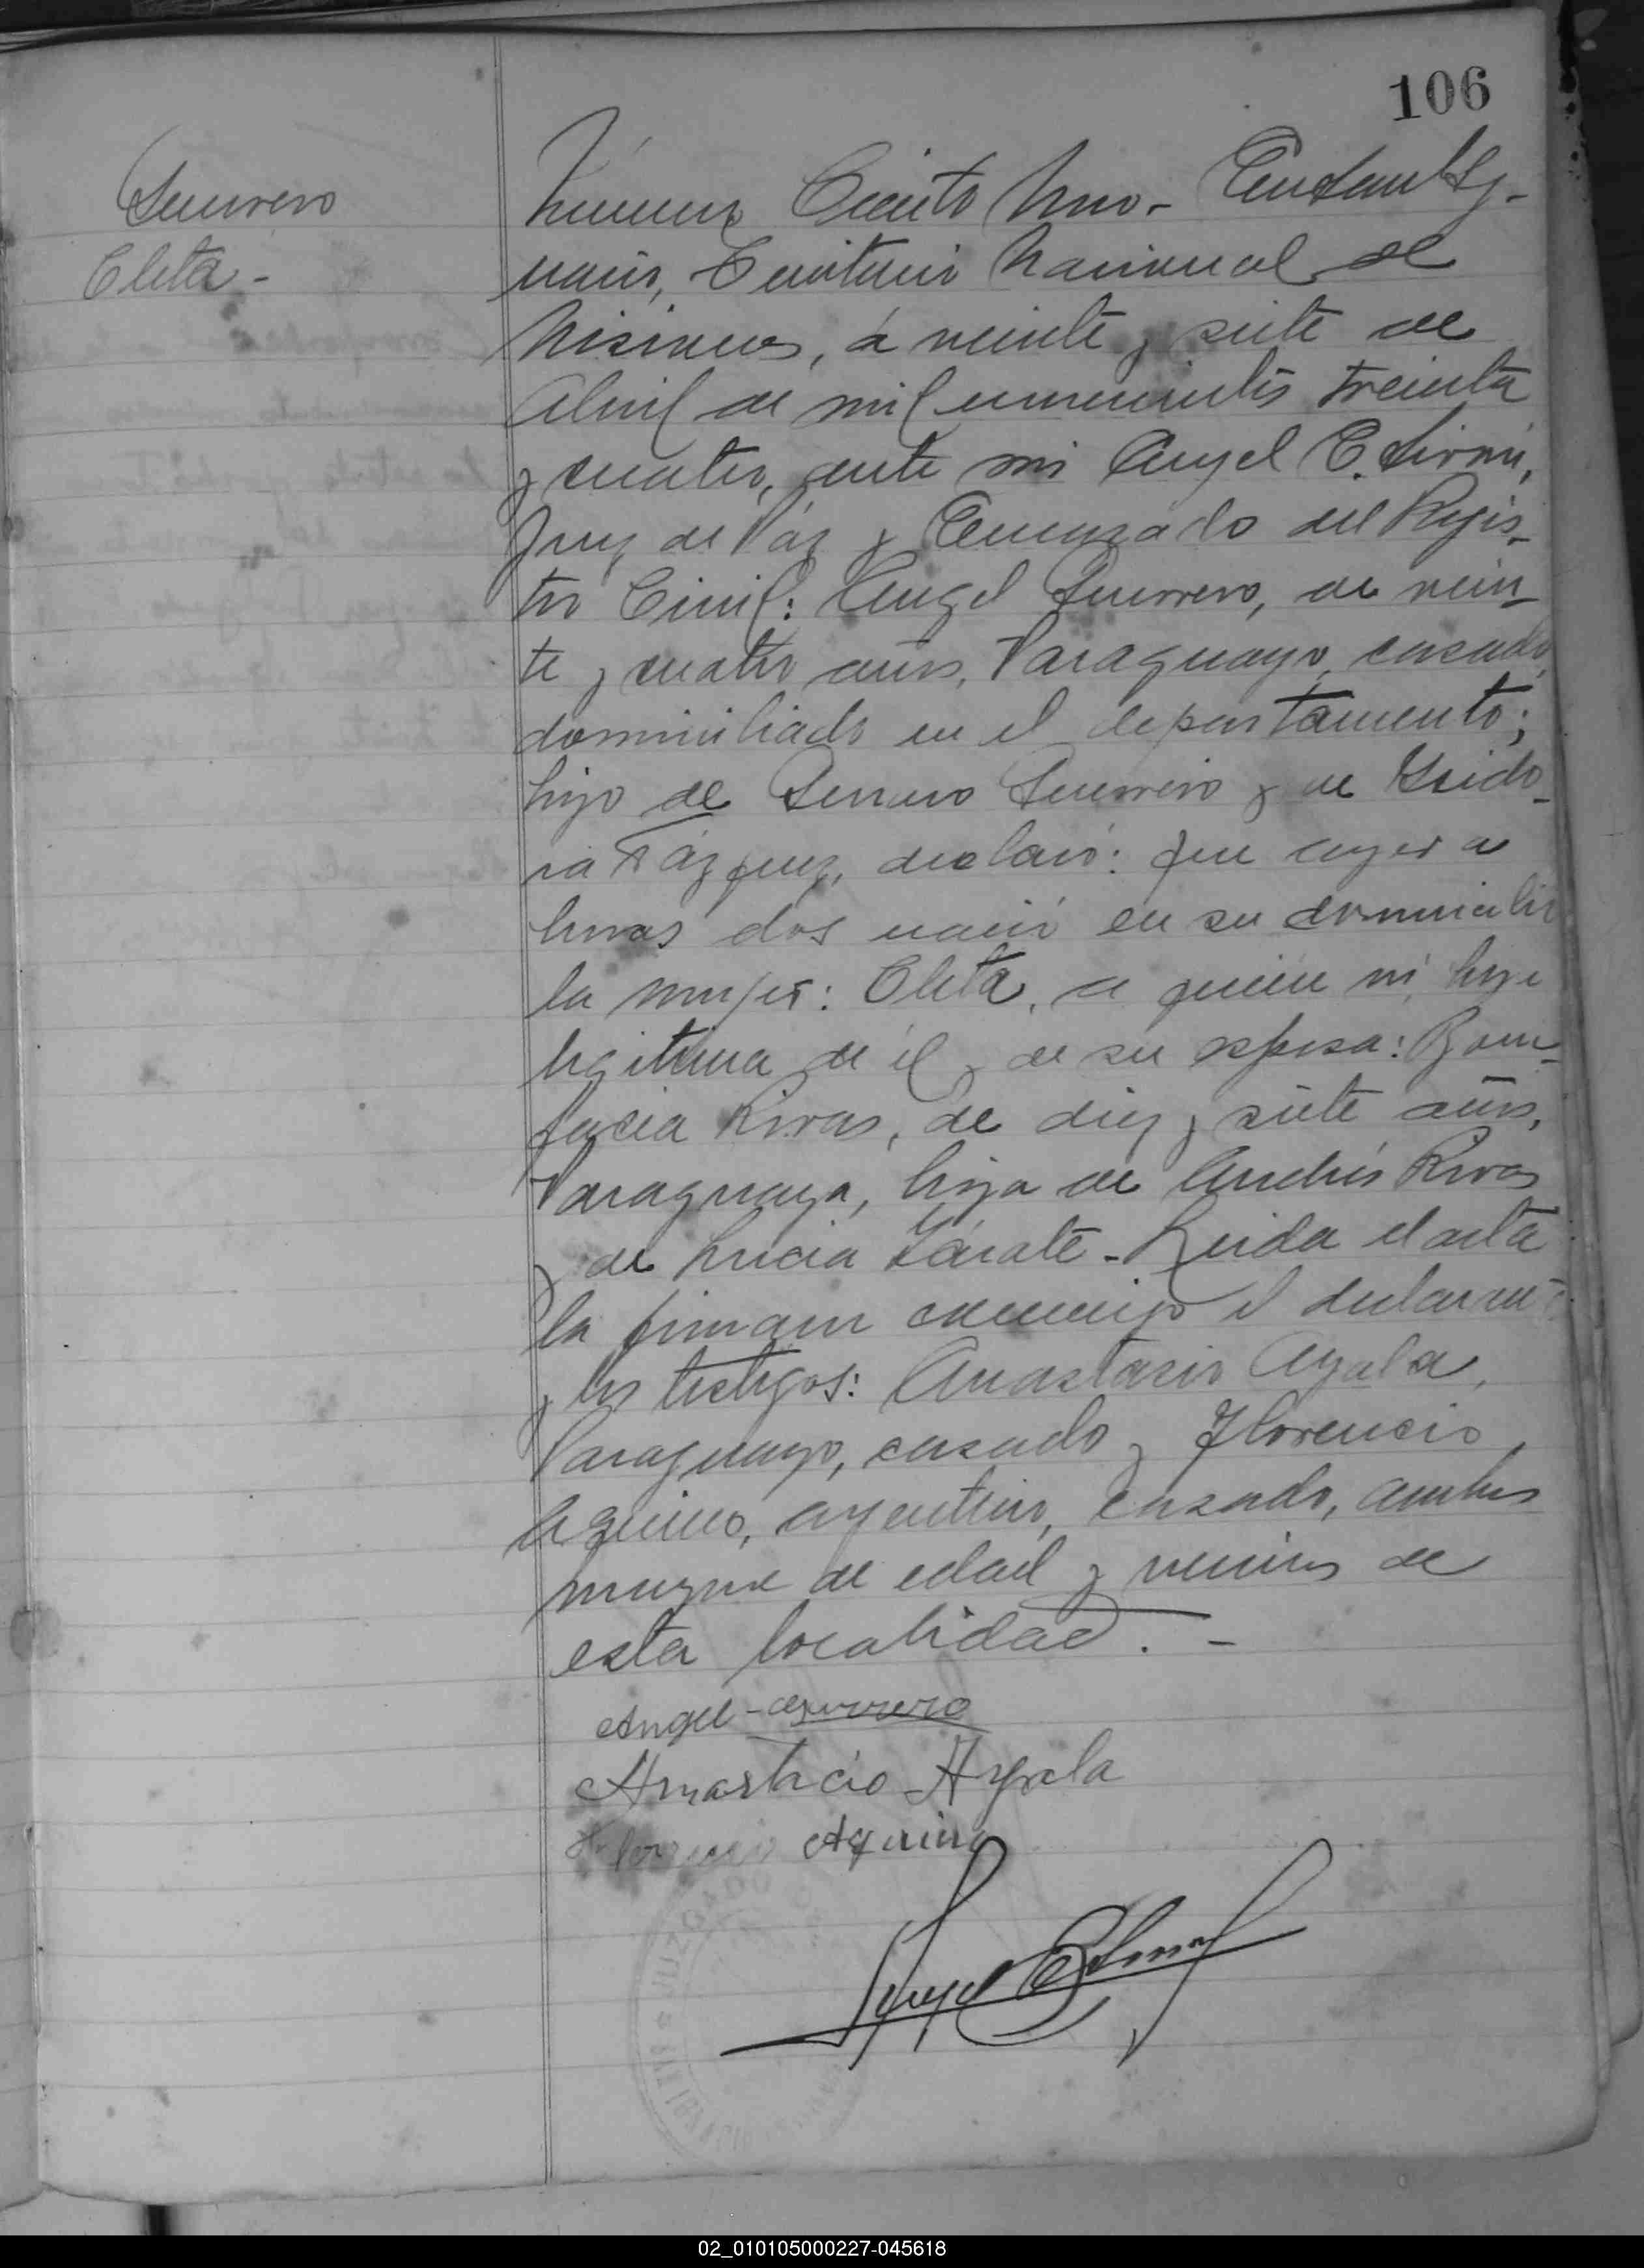 106
Guerrero
Cleta-
Número Ciento Uno- En San Ig-
nacio, Territorio Nacional de
Misiones, á veinte y siete de
Abril de mil novecientos treinta
y cuatro, ante mi Angel C.
Juez de Páz y Encargado del Regis-
tro Civil: Angel Guerrero, de vein-
te y cuatro años, Paraguayo, casado,
domiciliado en el departamento;
hijo de Genaro Guerrero y de Ysido-
ra Vázquez, declaró: que ayer a
horas dos nació en su domicilio
la mujer: Cleta, a quien vi, hija
legitima de él y de su esposa: Boni-
facia Rivas, de diez y siete años,
Paraguaya, hija de Andrés Rivas
y de Lucia Zárate- Leida el acta
la firman conmigo el declarante
y los testigos: Anastasio Ayala,
Paraguayo, casado y Florencio
Aquino, argentino, casado, ambos
mayores de edad y vecinos de
esta localidad.-
Angel-Guerrero
Anastacio Ayala
Florencio Aquino
JUZGADO
02_010105000227-045618